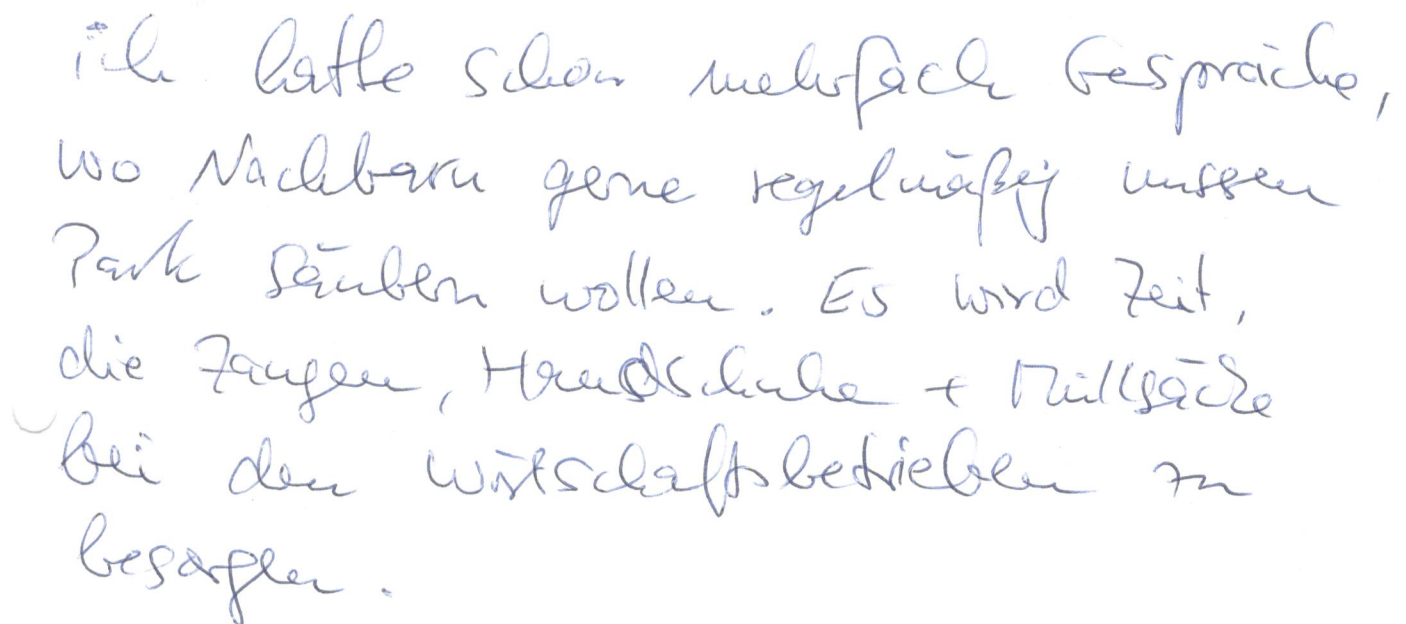 ich hatte schon mehrfach Gespräche,
wo Nachbarn gerne regelmäßig unseren
Park säubern wollen. Es wird Zeit,
die Zangen, Handschuhe + Müllsäcke
bei den Wirtschaftsbetrieben zu
besorgen.